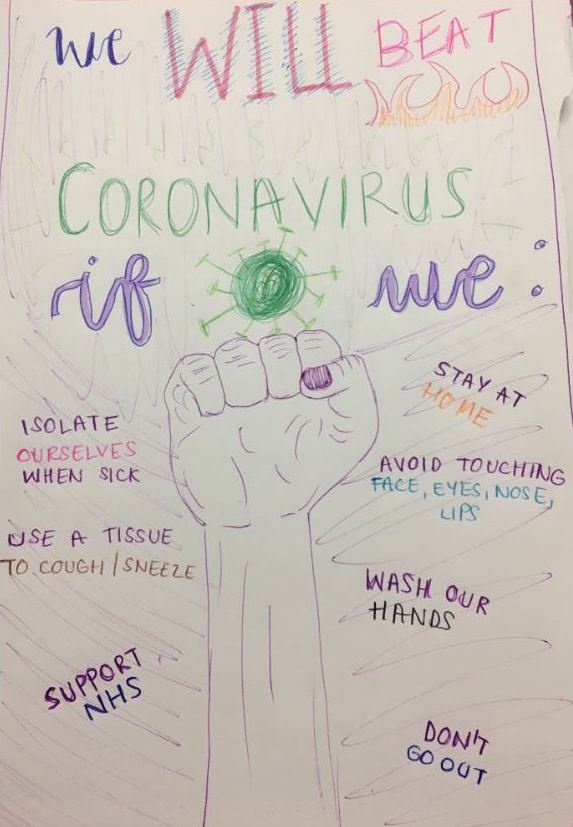 we WILL BEAT
CORONAVIRUS
if we:
ISOLATE
OURSELVES
WHEN SICK
USE A TISSUE
TO COUGH/SNEEZE
SUPPORT
NHS
STAY AT
HOME
AVOID TOUCHING
FACE, EYES, NOSE,
LIPS
WASH OUR
HANDS
DON'T
GO OUT